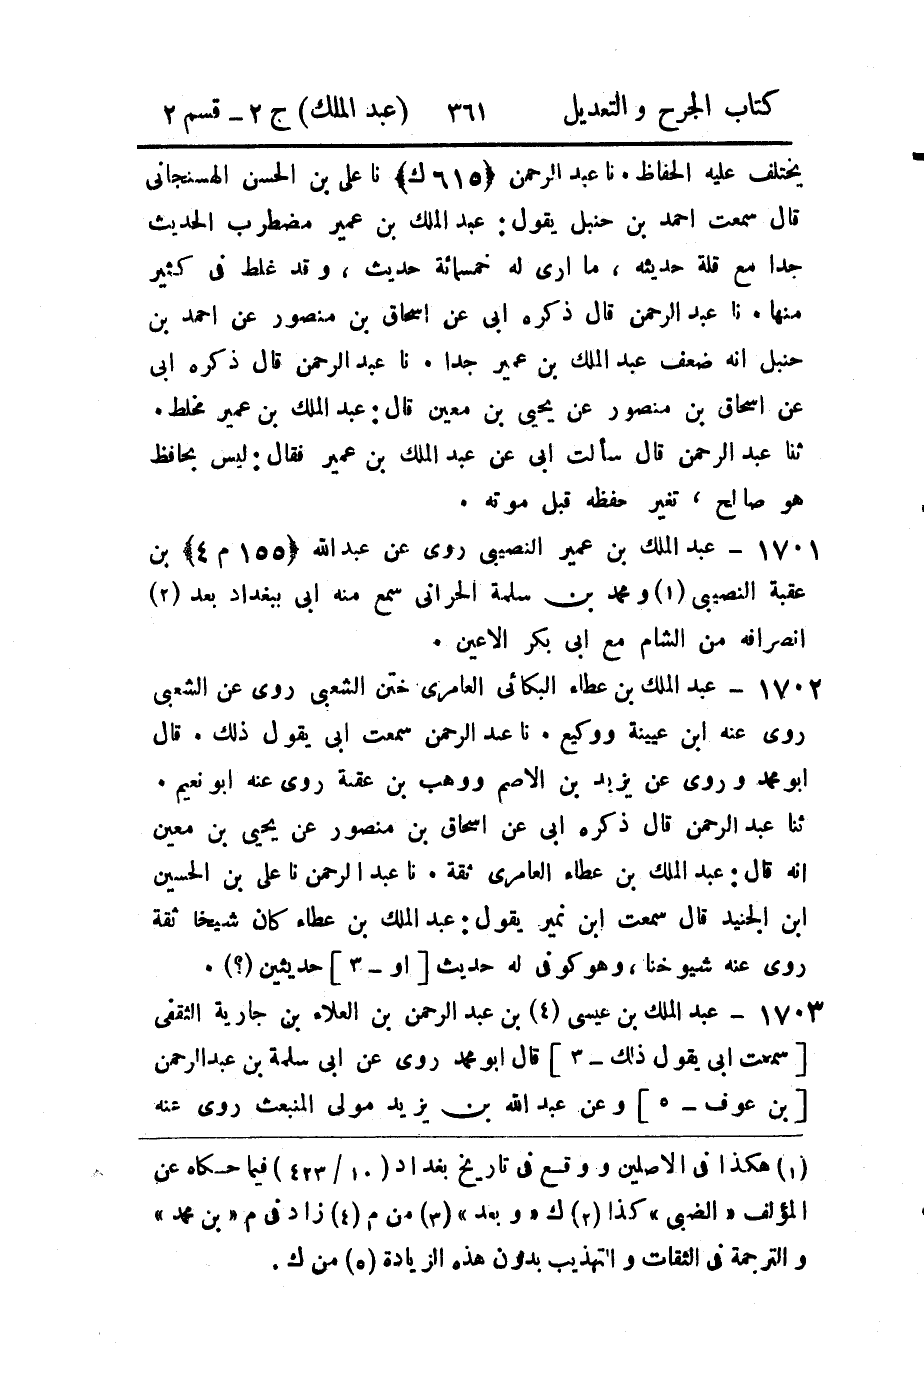 كتاب الجرح و التعديل ٣٦١ (عبد الملك) ج ٢ - قسم ٢
يختلف عليه الحفاظ . نا عبد الرحمن ﴿٦١٥ ك﴾ نا على بن الحسن الهسنجانى
قال سمعت احمد بن حنبل يقول : عبد الملك بن عمير مضطرب الحديث
جدا مع قلة حديثه ، ما ارى له خمسمائة حديث ، و قد غلط فى كثير
منها . نا عبد الرحمن قال ذكره ابى عن اسحاق بن منصور عن احمد بن
حنبل انه ضعف عبد الملك بن عمير جدا . نا عبد الرحمن قال ذكره ابى
عن اسحاق بن منصور عن يحيى بن معين قال : عبد الملك بن عمير مخلط .
ثنا عبد الرحمن قال سألت ابى عن عبد الملك بن عمير فقال : ليس بحافظ
هو صالح ، تغير حفظه قبل موته .
١٧٠١ - عبد الملك بن عمير النصيبى روى عن عبد الله ﴿١٥٥ م ٤﴾ بن
عقبة النصيبى (١) و محمد بن سلمة الحرانى سمع منه ابى ببغداد بعد (٢)
انصرافه من الشام مع ابى بكر الاعين .
١٧٠٢ - عبد الملك بن عطاء البكائى العامرى ختن الشعبى روى عن الشعبى
روى عنه ابن عيينة ووكيع . نا عبد الرحمن سمعت ابى يقول ذلك . قال
ابو محمد و روى عن يزيد بن الاصم ووهب بن عقبة روى عنه ابو نعيم .
ثنا عبد الرحمن قال ذكره ابى عن اسحاق بن منصور عن يحيى بن معين
انه قال : عبد الملك بن عطاء العامرى ثقة . نا عبد الرحمن نا على بن الحسين
ابن الجنيد قال سمعت ابن نمير يقول : عبد الملك بن عطاء كان شيخا ثقة
روى عنه شيوخنا ، وهو كوفى له حديث [ او - ٣ ] حديثين (؟) .
١٧٠٣ - عبد الملك بن عيسى (٤) بن عبد الرحمن بن العلاء بن جارية الثقفى
[ سمعت ابى يقول ذلك - ٣ ] قال ابو محمد روى عن ابى سلمة بن عبدالرحمن
[ بن عوف - ٥ ] و عن عبد الله بن يزيد مولى المنبعث روى عنه
(١) هكذا فى الاصلين و وقع فى تاريخ بغداد (١٠ / ٤٢٣) فيما حكاه عن
المؤلف « الضبى » كذا (٢) ك « و بعد » (٣) من م (٤) زاد فى م « بن محمد »
و الترجمة فى الثقات و التهذيب بدون هذه الزيادة (٥) من ك .